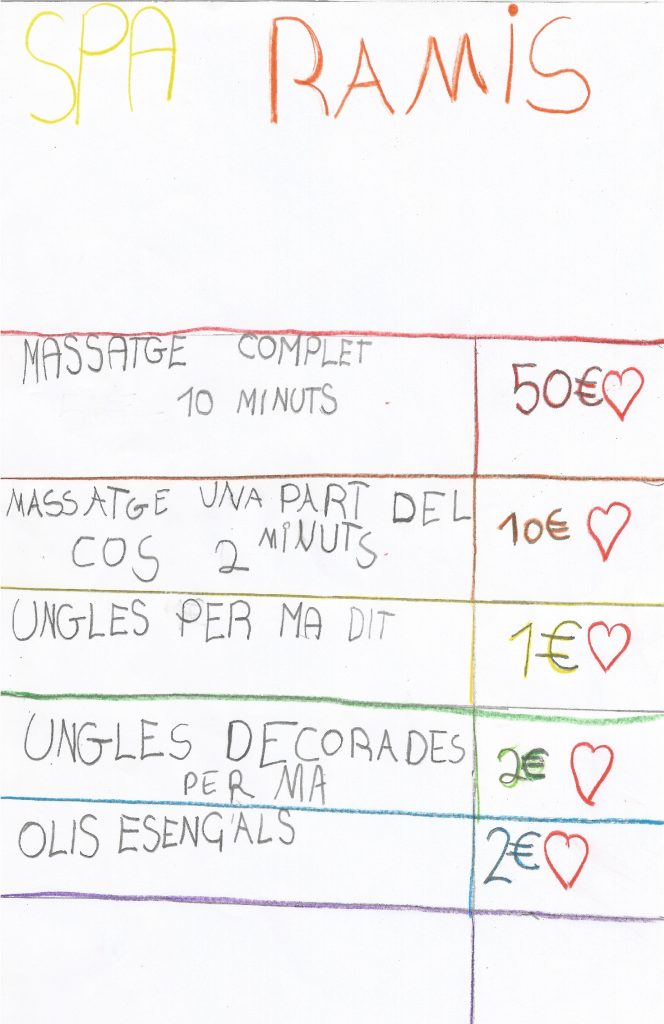 SPA RAMiS
MASSATGE COMPLET 50€
10 MINUTS
MASSATGE UNA PART DEL 10€
COS 2 MINUTS
UNGLES PER MA DIT 1€
UNGLES DECORADES 2€
PER MA
OLIS ESENG'ALS 2€